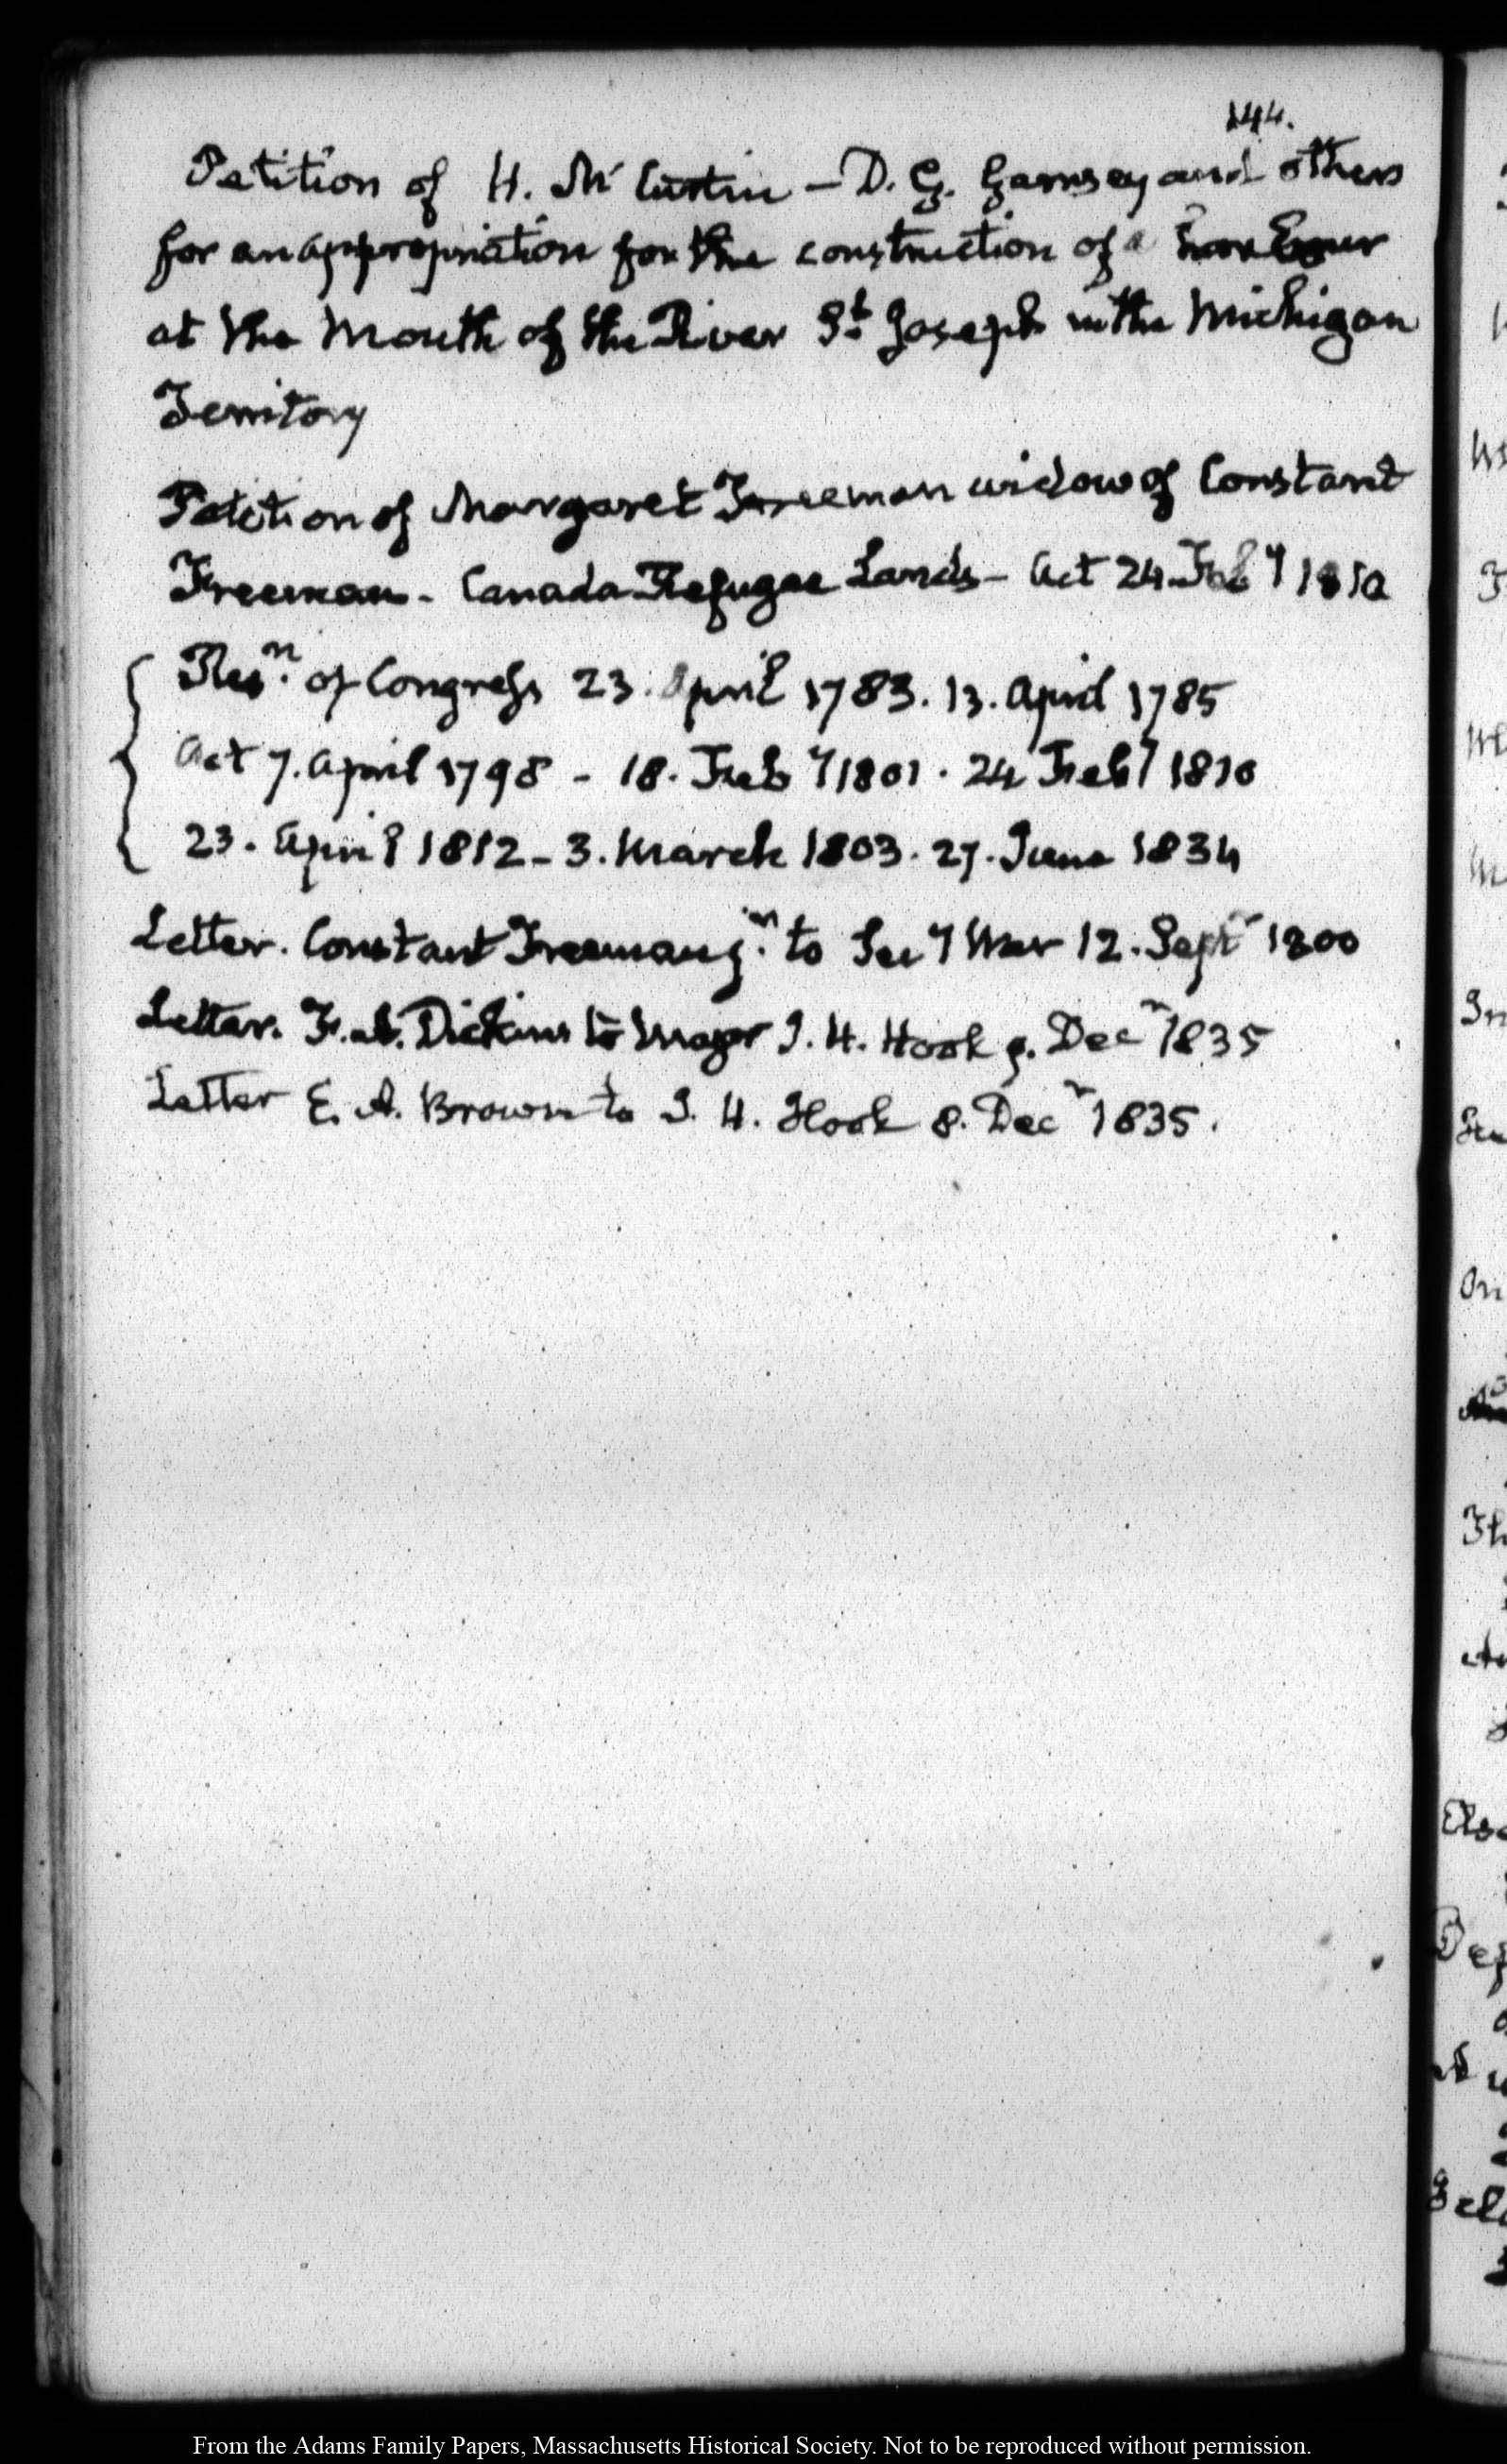 144.
Petition of H. Mc Custin – D. G. Garnsey and others
for an appropriation for the construction of a
at the Mouth of the River St. Joseph in the Michigan
Territory
Petition of Margaret Freeman widow of Constant
Freeman – Canada Refugee Lands – Act 24 Feby 1810
Resn. of Congress 23. April 1783. 13. April 1785
Act 7. April 1798 – 18. Feby 1801. 24 Feby 1810
23. April 1812 – 3. March 1803. 27. June 1834
Letter. Constant Freeman jn. to Secy War 12. Sept 1800
Letter. F. A. Dickins to Major J. H. Hook 9. Decr 1835
Letter E. A. Brown to J. H. Hook 8. Decr 1835.
From the Adams Family Papers, Massachusetts Historical Society. Not to be reproduced without permission.